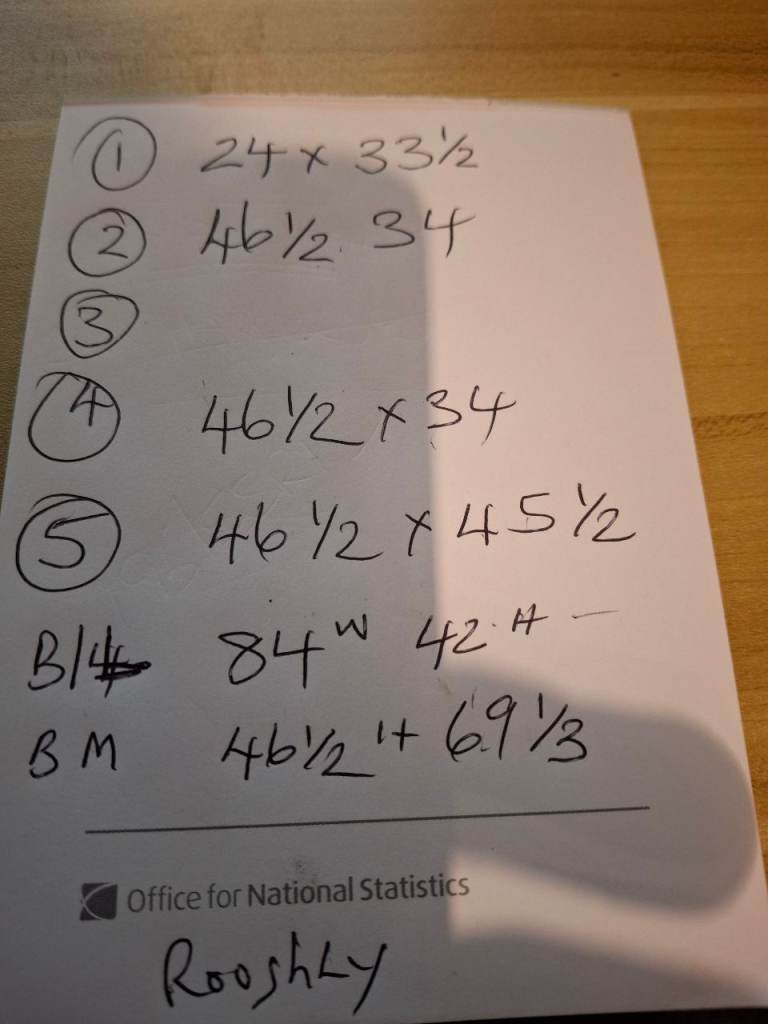 ① 24 x 33 1/2
② 46 1/2. 34
③
④ 46 1/2 x 34
⑤ 46 1/2 x 45 1/2
84 W 42. H -
B M 46 1/2 H 69 1/3
Office for National Statistics
RooghLy